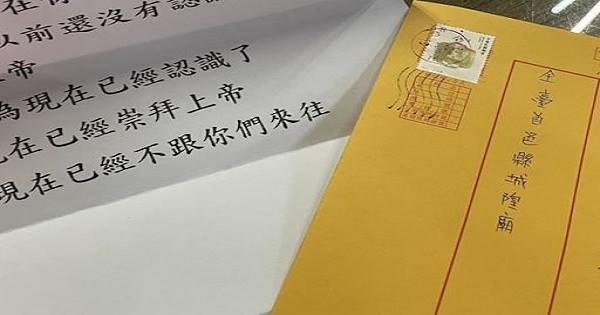 以前還沒有認
帝
為現在已經認識了
在已經崇拜上帝
現在已經不跟你們來往
全臺首邑縣城隍廟